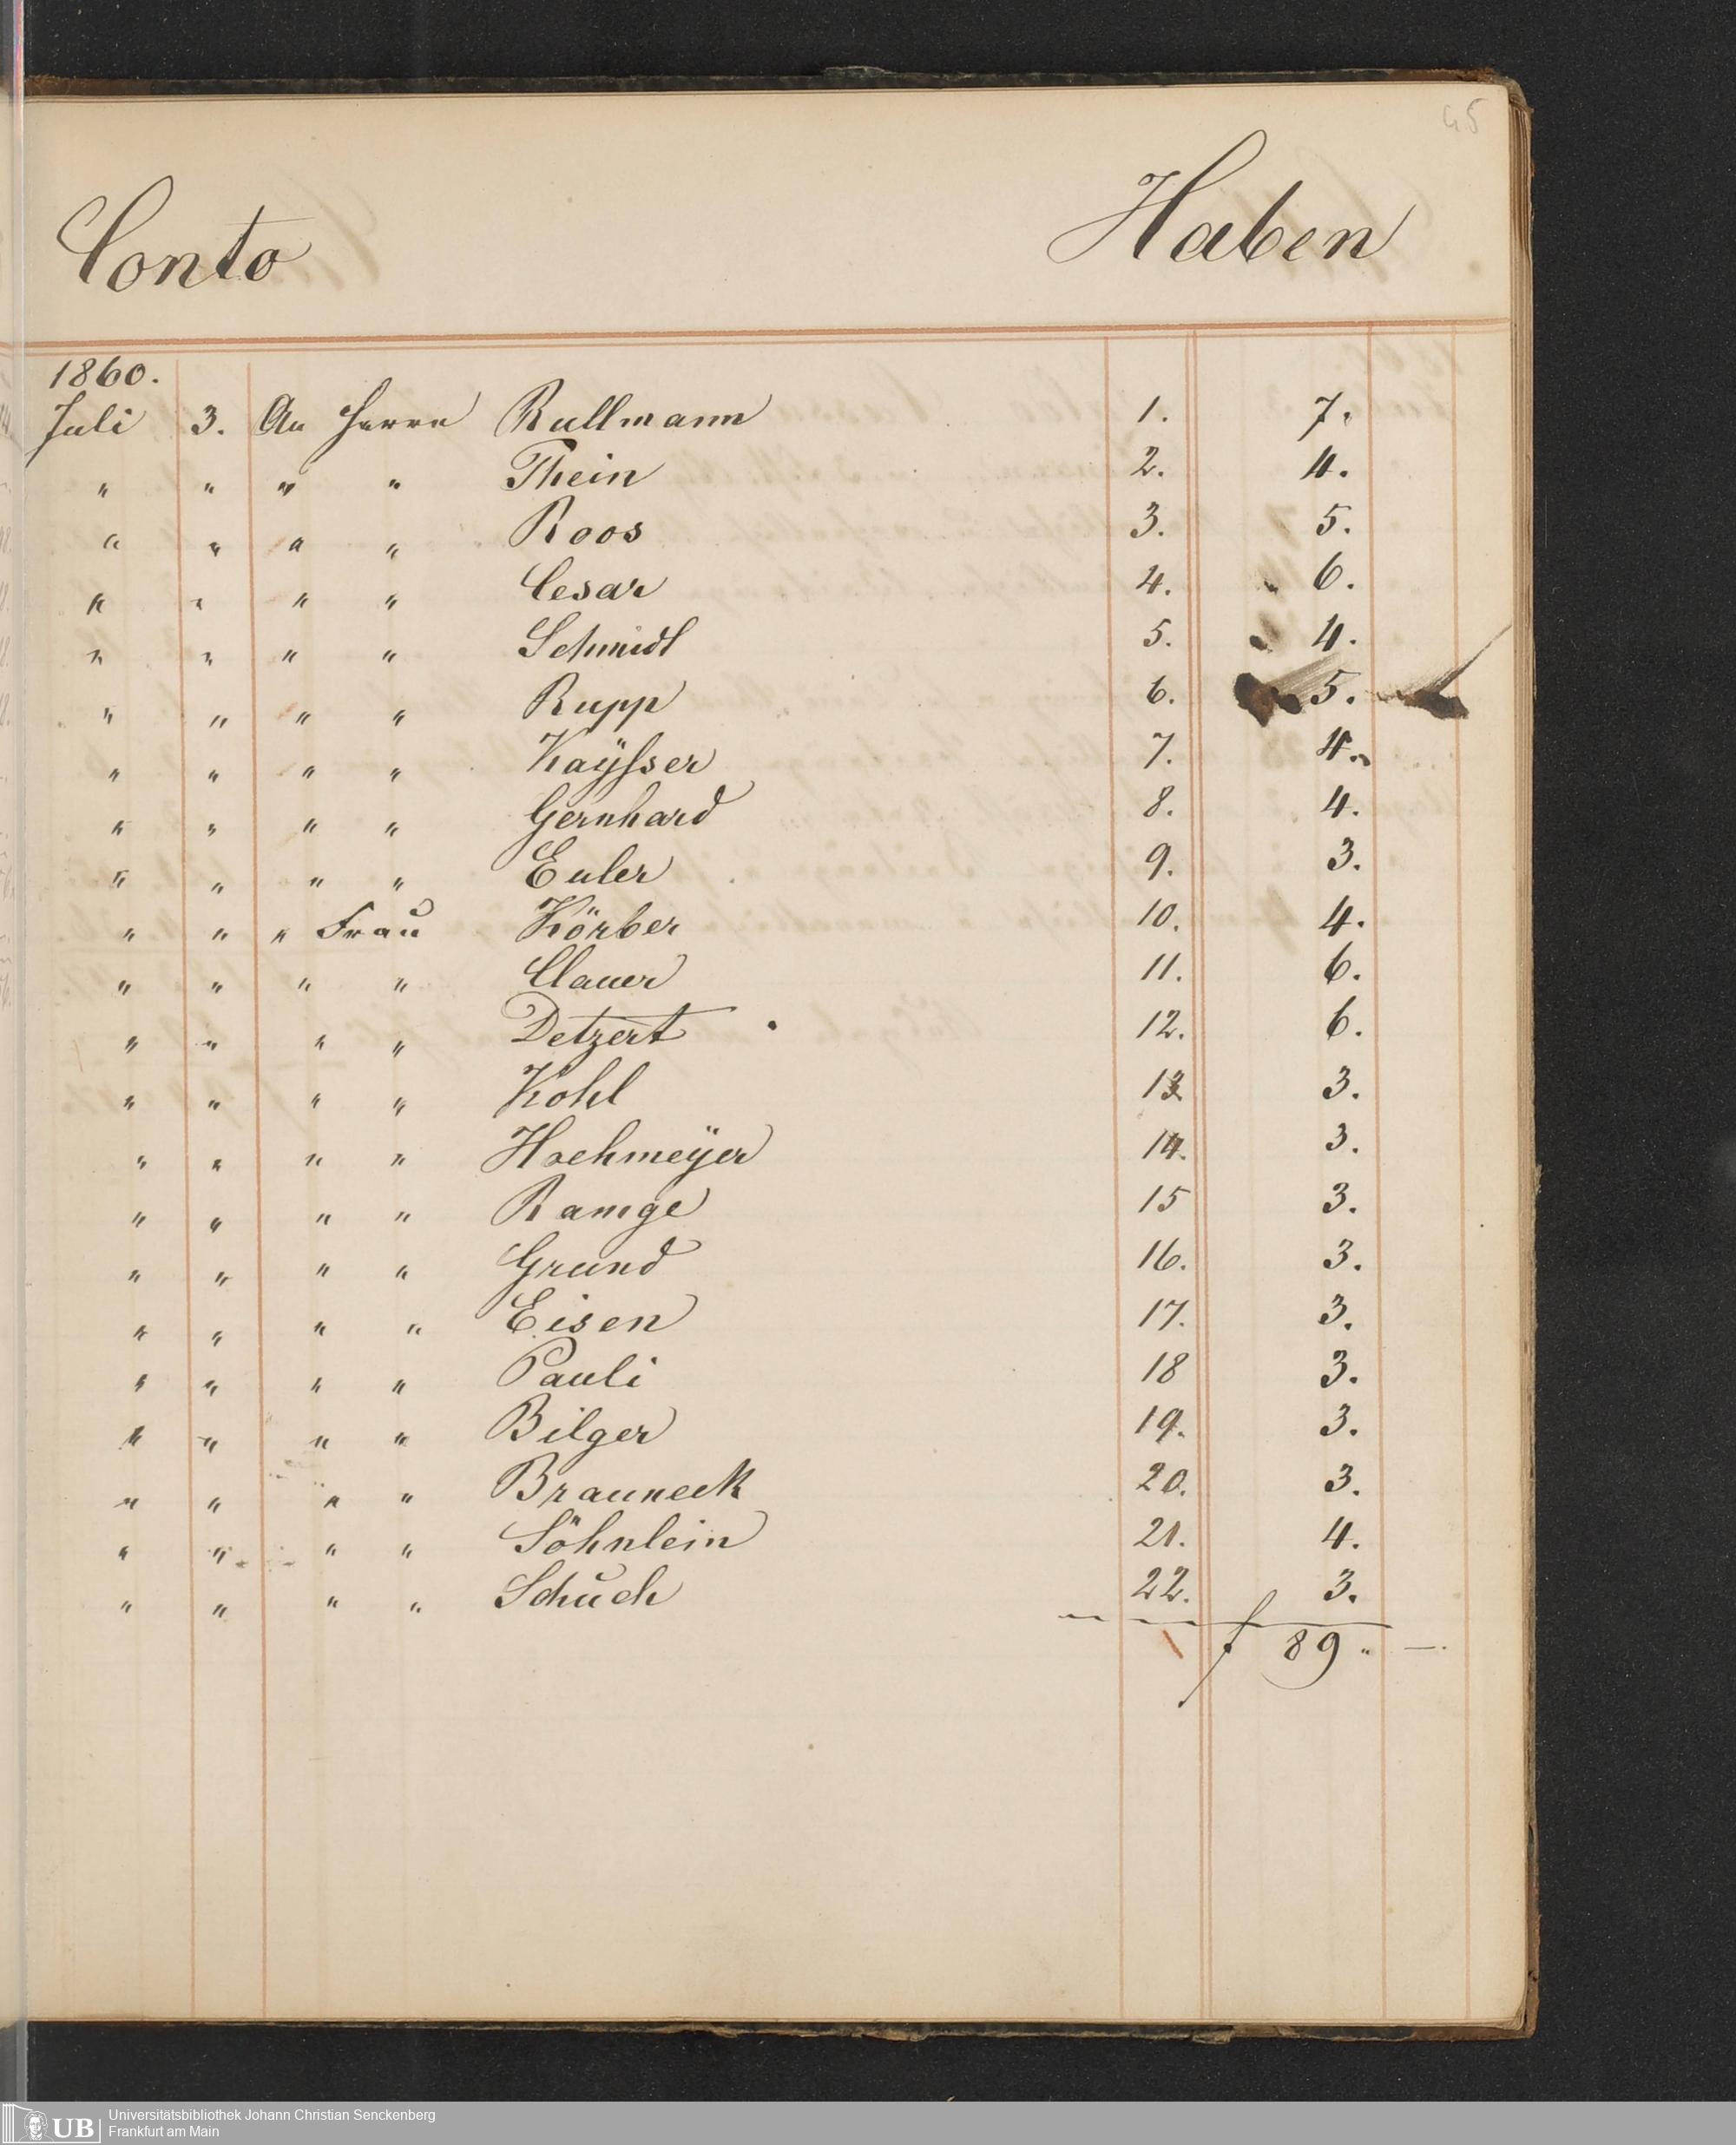 45
Conto Haben
1860.
Juli 3. An Herrn Rullmann 1. 7.
" " " " Thein 2. 4.
" " " " Roos 3. 5.
" " " " Cesar 4. 6.
" " " " Schmidt 5. 4.
" " " " Rupp 6. 5.
" " " " Kaÿsser 7. 4.
" " " " Gernhard 8. 4.
" " " " Euler 9. 3.
" " " Frau Körber 10. 4.
" " " " Clauer 11. 6.
" " " " Detzert 12. 6.
" " " " Kohl 13 3.
" " " " Hochmeÿer 14. 3.
" " " " Ramge 15 3.
" " " " Grund 16. 3.
" " " " Eisen 17. 3.
" " " " Pauli 18 3.
" " " " Bilger 19. 3.
" " " " Brauneck 20. 3.
" " " " Söhnlein 21. 4.
" " " " Schuch 22. 3.
f 89. —.
UB Universitätsbibliothek Johann Christian Senckenberg
Frankfurt am Main